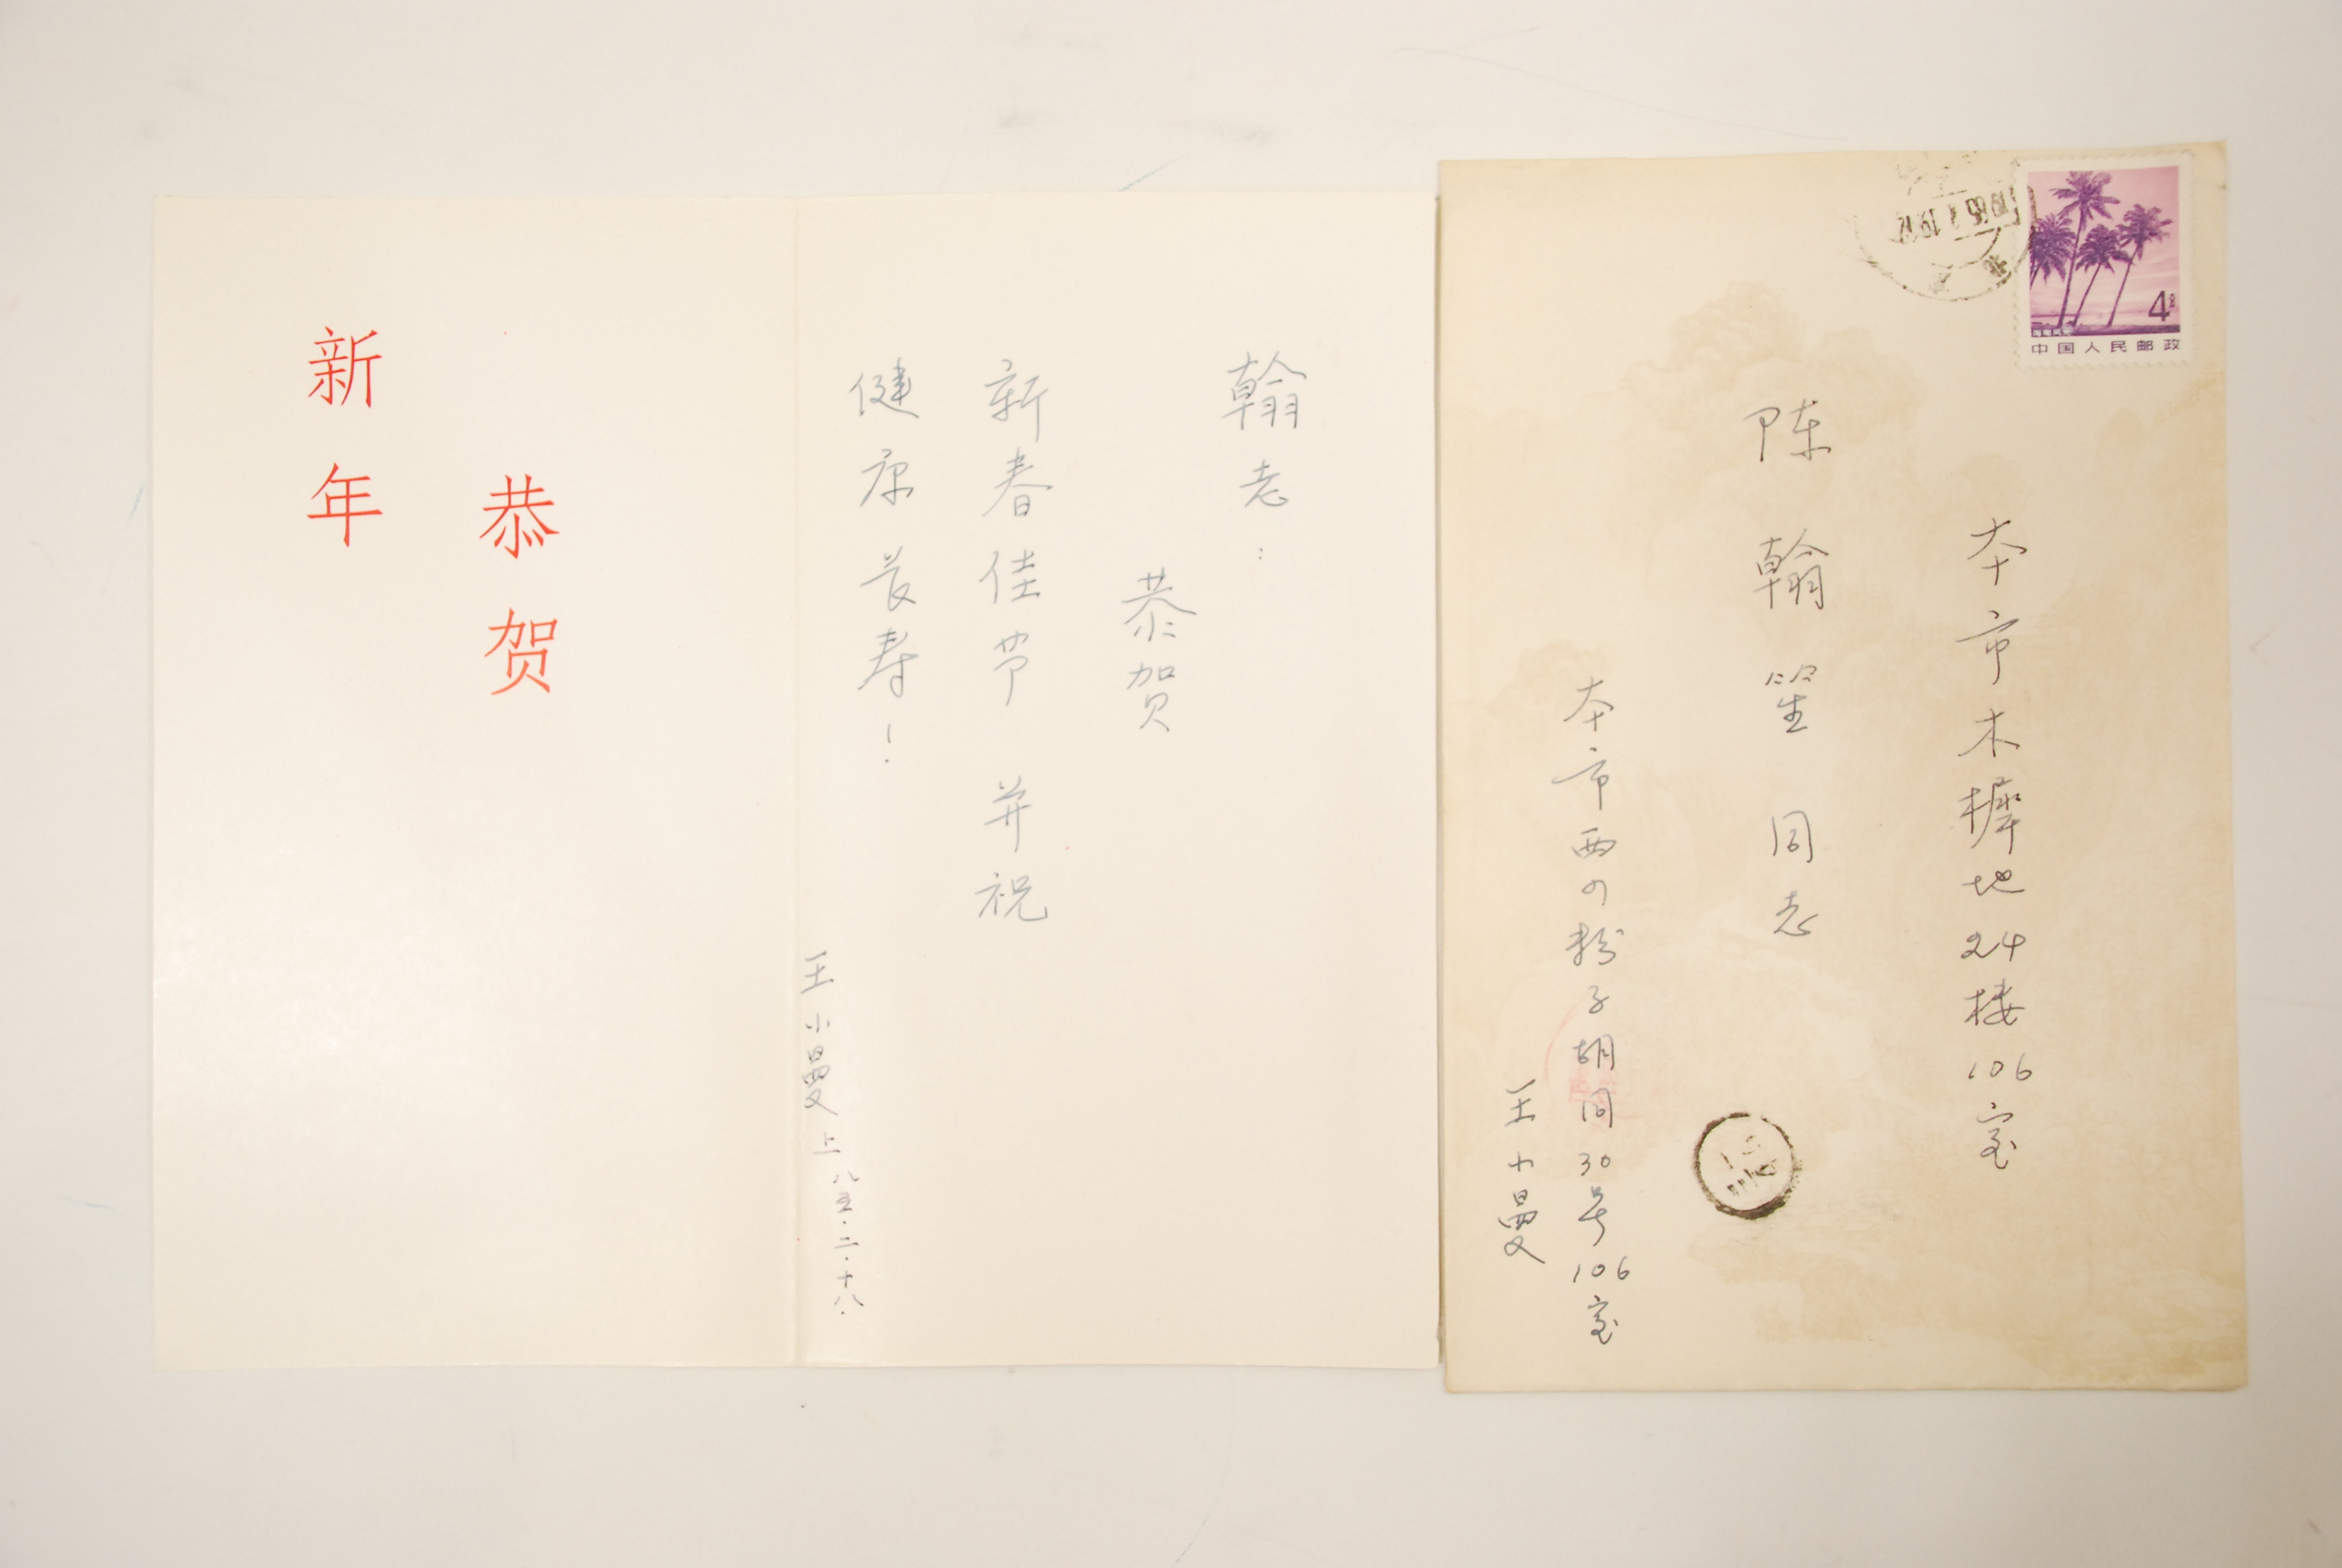 恭贺
新年
翰老：
恭贺
新春佳节 并祝
健康长寿！
王小曼 上 八五·二·十八·
4分
中国人民邮政
本市木樨地24楼106室
陈翰笙 同志
本市西四粉子胡同30号106室
王小曼